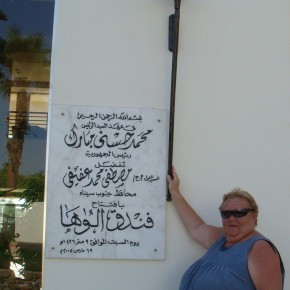 بسم الله الرحمن الرحيم
فى عهد السيد الرئيس
محمد حسنى مبارك
رئيس الجمهورية
تفضل
مصطفى محمد عفيفى
محافظ جنوب سيناء
بافتتاح
فندق الوها
يوم السبت الموافق ٩ صفر ١٤٢٦هـ
١٩ مارس ٢٠٠٥م